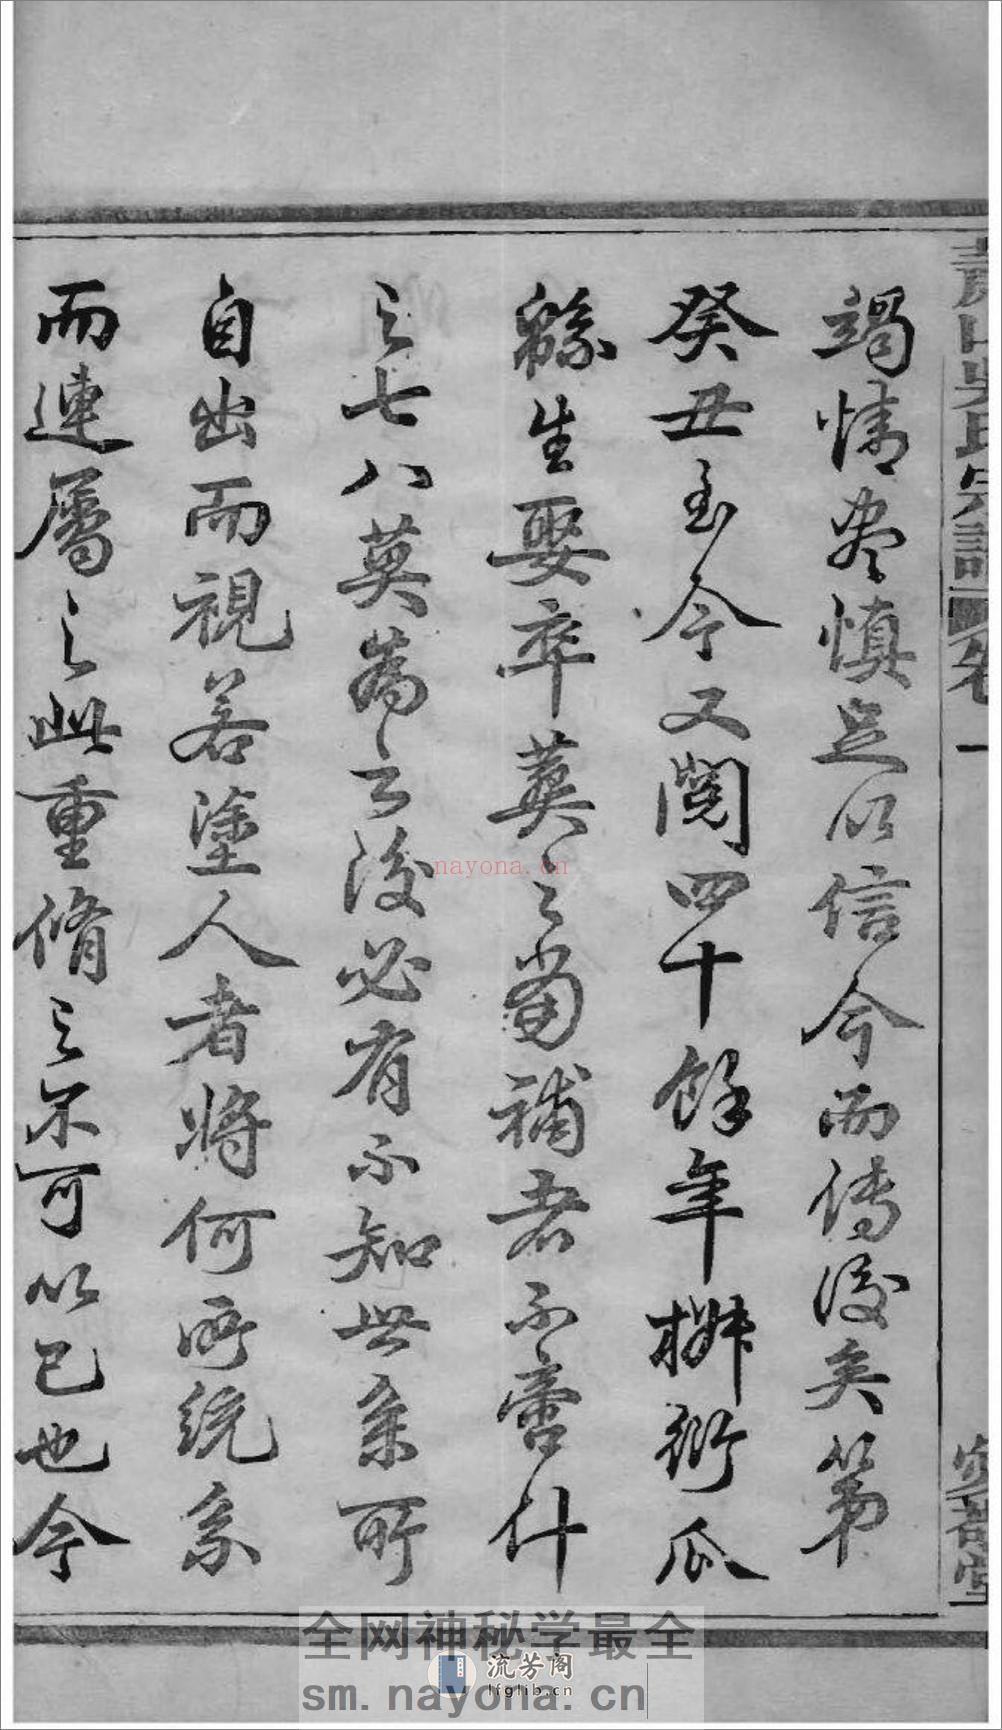 竭情盡慎足以信今而傳後矣第
癸丑至今又閱四十餘年椒衍瓜
緜生娶卒葬之當補者不啻什
之七八莫為之後必有不知世系所
自出而視若塗人者將何所統系
而連屬之此重脩之不可以已也今
吳氏宗譜
卷一
nayona.cn
全网神秘学最全
流芳阁
lfglib.cn
sm.nayona.cn